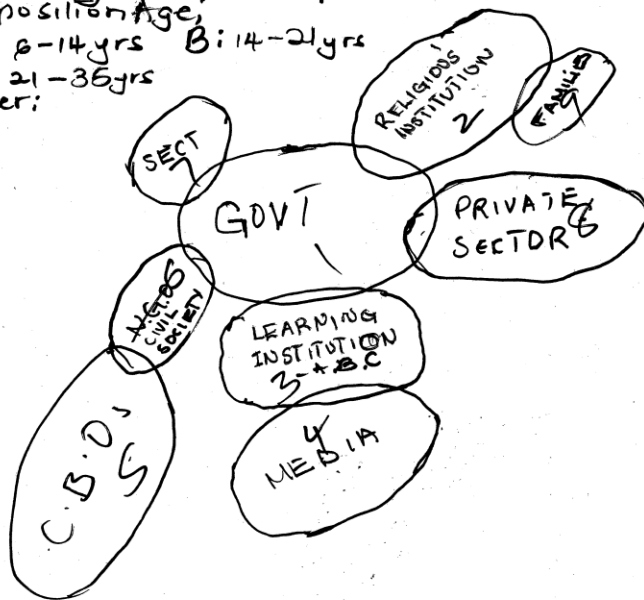 position Age,
6-14yrs B: 14-21yrs
21-35yrs
er:
RELIGIOUS
INSTITUTION
2
FAMILIES
9
SECT
7
GOVT
1
PRIVATE
SECTOR 6
N.G.OS
CIVIL
SOCIETY
LEARNING
INSTITUTION
3-A.B.C
4
MEDIA
C.B.Os
5